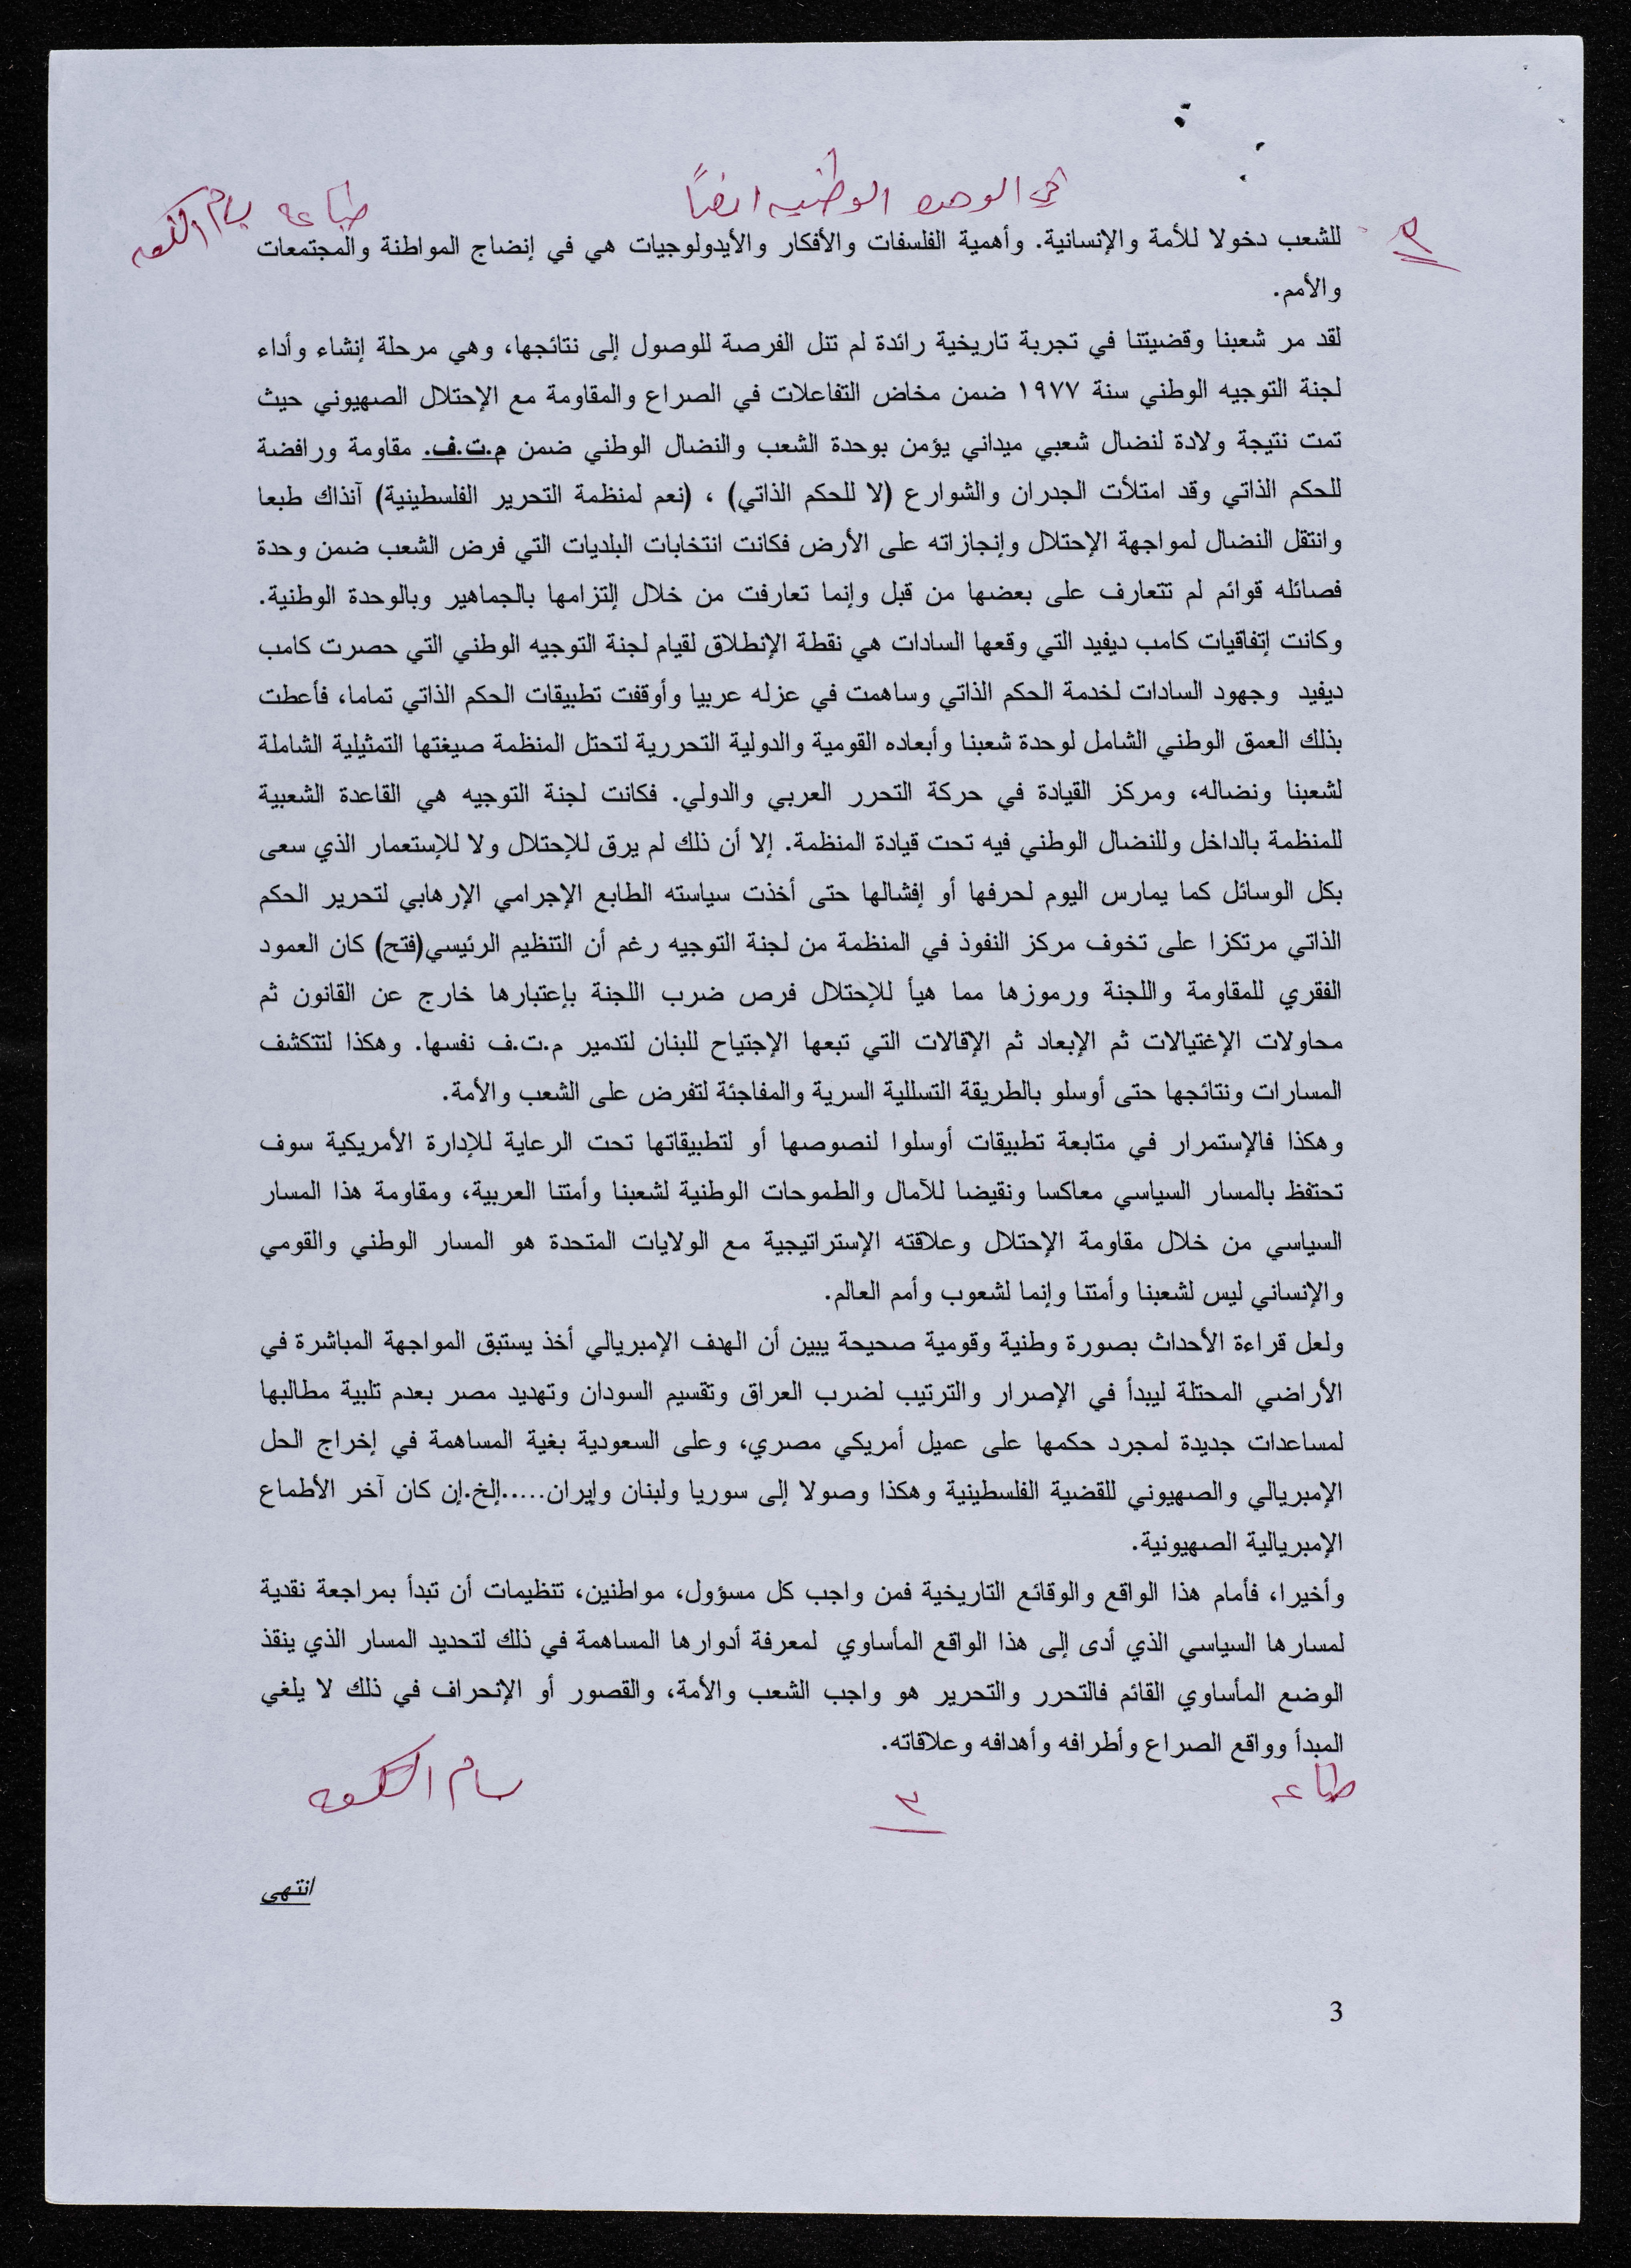 في الوحده الوطنيه ايضاً
طباعه
بسام الشكعه
للشعب دخولا للأمة والإنسانية. وأهمية الفلسفات والأفكار والأيدولوجيات هي في إنضاج المواطنة والمجتمعات
والأمم.
لقد مر شعبنا وقضيتنا في تجربة تاريخية رائدة لم تنل الفرصة للوصول إلى نتائجها، وهي مرحلة إنشاء وأداء
لجنة التوجيه الوطني سنة ١٩٧٧ ضمن مخاض التفاعلات في الصراع والمقاومة مع الإحتلال الصهيوني حيث
تمت نتيجة ولادة لنضال شعبي ميداني يؤمن بوحدة الشعب والنضال الوطني ضمن م.ت.ف. مقاومة ورافضة
للحكم الذاتي وقد امتلأت الجدران والشوارع (لا للحكم الذاتي) ، (نعم لمنظمة التحرير الفلسطينية) آنذاك طبعا
وانتقل النضال لمواجهة الإحتلال وإنجازاته على الأرض فكانت انتخابات البلديات التي فرض الشعب ضمن وحدة
فصائله قوائم لم تتعارف على بعضها من قبل وإنما تعارفت من خلال إلتزامها بالجماهير وبالوحدة الوطنية.
وكانت إتفاقيات كامب ديفيد التي وقعها السادات هي نقطة الإنطلاق لقيام لجنة التوجيه الوطني التي حصرت كامب
ديفيد وجهود السادات لخدمة الحكم الذاتي وساهمت في عزله عربيا وأوقفت تطبيقات الحكم الذاتي تماما، فأعطت
بذلك العمق الوطني الشامل لوحدة شعبنا وأبعاده القومية والدولية التحررية لتحتل المنظمة صيغتها التمثيلية الشاملة
لشعبنا ونضاله، ومركز القيادة في حركة التحرر العربي والدولي. فكانت لجنة التوجيه هي القاعدة الشعبية
للمنظمة بالداخل وللنضال الوطني فيه تحت قيادة المنظمة. إلا أن ذلك لم يرق للإحتلال ولا للإستعمار الذي سعى
بكل الوسائل كما يمارس اليوم لحرفها أو إفشالها حتى أخذت سياسته الطابع الإجرامي الإرهابي لتحرير الحكم
الذاتي مرتكزا على تخوف مركز النفوذ في المنظمة من لجنة التوجيه رغم أن التنظيم الرئيسي(فتح) كان العمود
الفقري للمقاومة واللجنة ورموزها مما هيأ للإحتلال فرص ضرب اللجنة بإعتبارها خارج عن القانون ثم
محاولات الإغتيالات ثم الإبعاد ثم الإقالات التي تبعها الإجتياح للبنان لتدمير م.ت.ف نفسها. وهكذا لتتكشف
المسارات ونتائجها حتى أوسلو بالطريقة التسللية السرية والمفاجئة لتفرض على الشعب والأمة.
وهكذا فالإستمرار في متابعة تطبيقات أوسلوا لنصوصها أو لتطبيقاتها تحت الرعاية للإدارة الأمريكية سوف
تحتفظ بالمسار السياسي معاكسا ونقيضا للآمال والطموحات الوطنية لشعبنا وأمتنا العربية، ومقاومة هذا المسار
السياسي من خلال مقاومة الإحتلال وعلاقته الإستراتيجية مع الولايات المتحدة هو المسار الوطني والقومي
والإنساني ليس لشعبنا وأمتنا وإنما لشعوب وأمم العالم.
ولعل قراءة الأحداث بصورة وطنية وقومية صحيحة يبين أن الهدف الإمبريالي أخذ يستبق المواجهة المباشرة في
الأراضي المحتلة ليبدأ في الإصرار والترتيب لضرب العراق وتقسيم السودان وتهديد مصر بعدم تلبية مطالبها
لمساعدات جديدة لمجرد حكمها على عميل أمريكي مصري، وعلى السعودية بغية المساهمة في إخراج الحل
الإمبريالي والصهيوني للقضية الفلسطينية وهكذا وصولا إلى سوريا ولبنان وإيران.....إلخ.إن كان آخر الأطماع
الإمبريالية الصهيونية.
وأخيرا، فأمام هذا الواقع والوقائع التاريخية فمن واجب كل مسؤول، مواطنين، تنظيمات أن تبدأ بمراجعة نقدية
لمسارها السياسي الذي أدى إلى هذا الواقع المأساوي لمعرفة أدوارها المساهمة في ذلك لتحديد المسار الذي ينقذ
الوضع المأساوي القائم فالتحرر والتحرير هو واجب الشعب والأمة، والقصور أو الإنحراف في ذلك لا يلغي
المبدأ وواقع الصراع وأطرافه وأهدافه وعلاقاته.
طباعه ٣ بسام الشكعه
انتهى
3